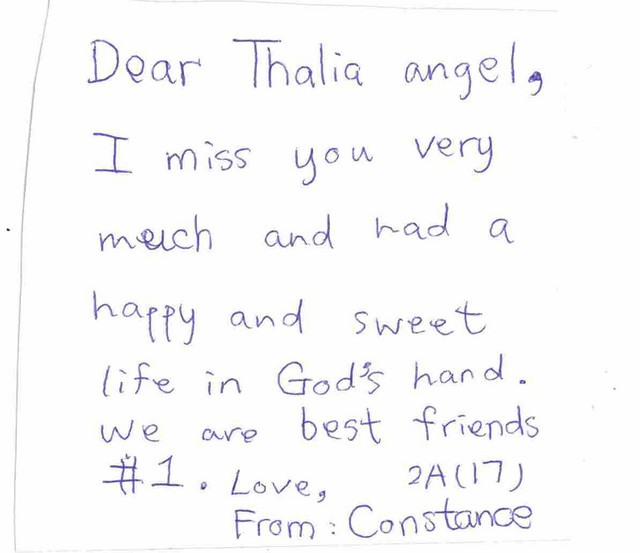 Dear Thalia angel,
I miss you very
much and had a
happy and sweet
life in God's hand.
We are best friends
#1. Love, 2A(17)
From: Constance